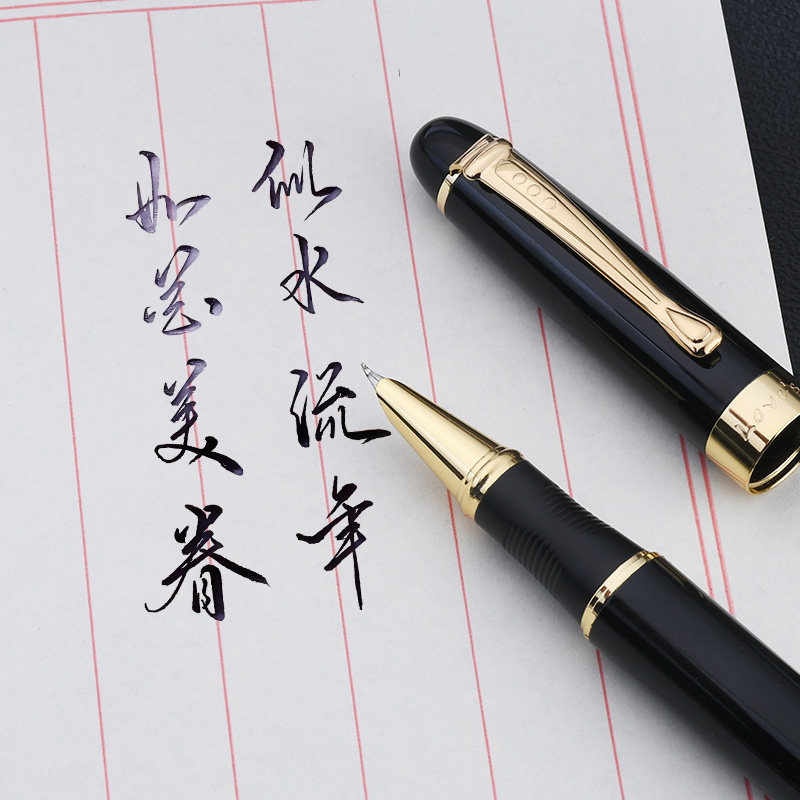 似水流年
如花美眷